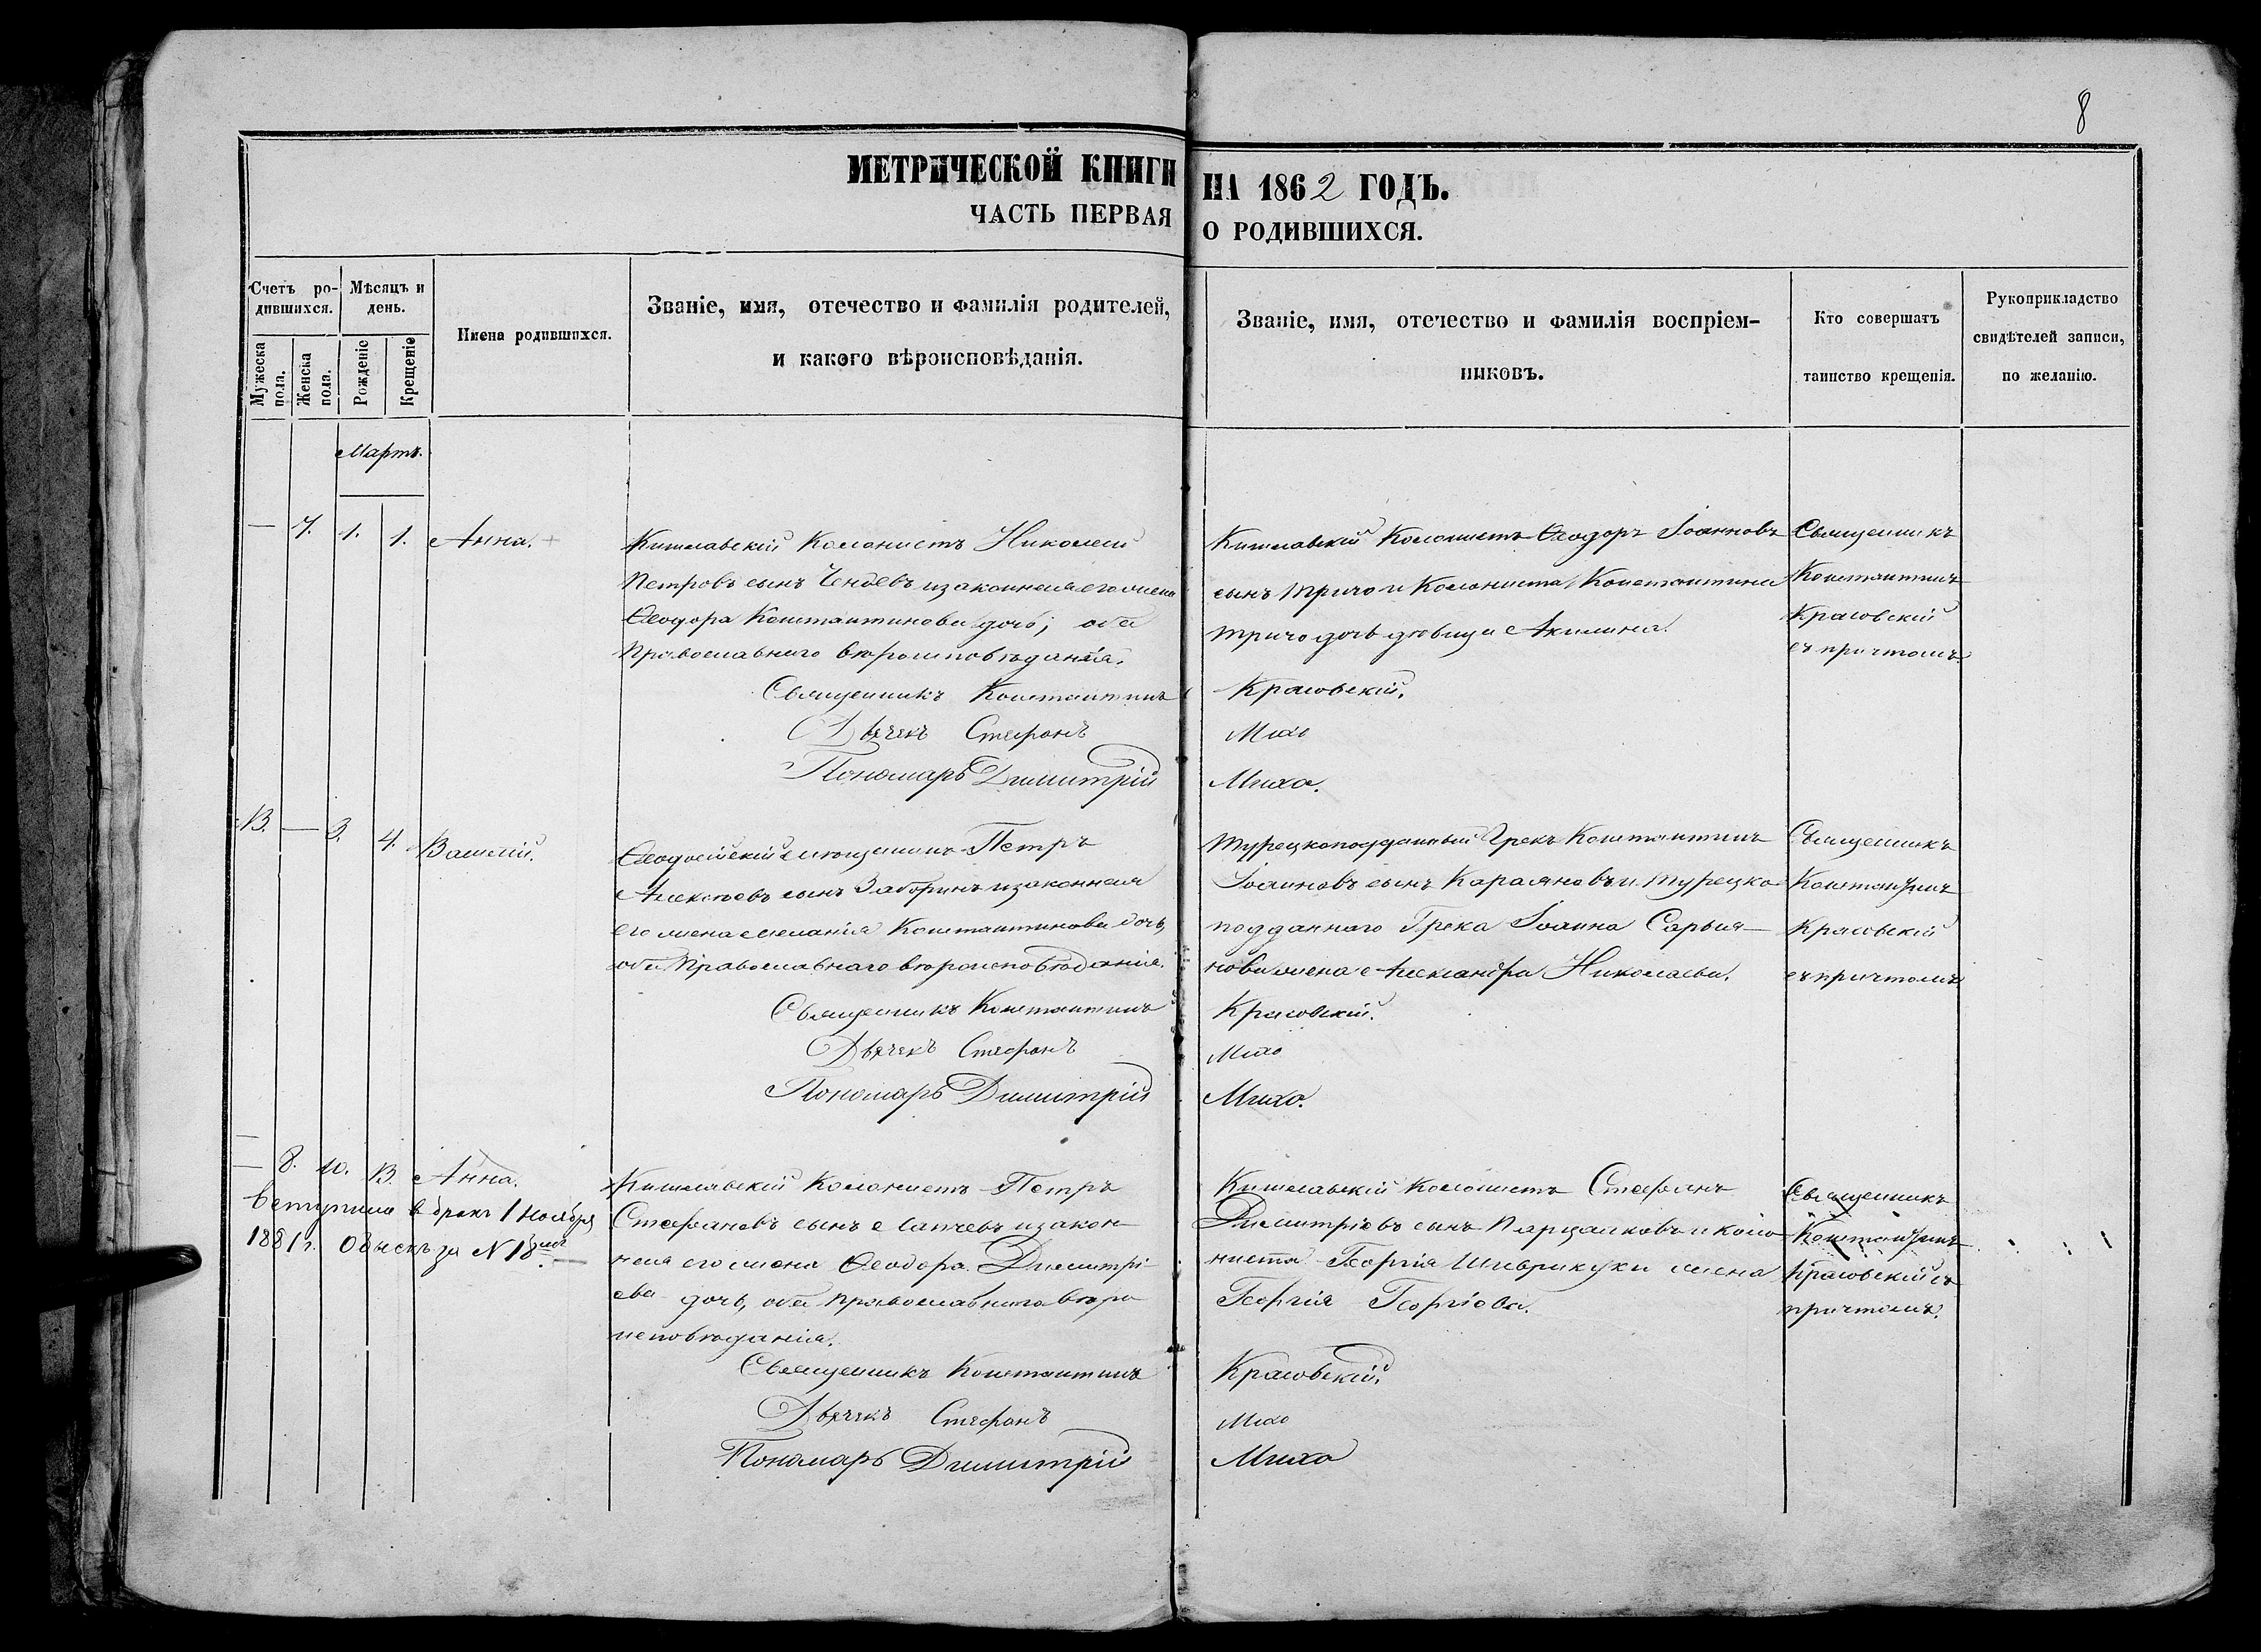 8
МЕТРИЧЕСКОЙ КНИГИ НА 1862 ГОДЪ.
ЧАСТЬ ПЕРВАЯ О РОДИВШИХСЯ.
Счетъ ро-
дившихся.
Мужеска пола.
Женска пола.
Мѣсяцъ и
день.
Рожденіе
Крещеніе
Имена родившихся.
Званіе, имя, отечество и фамилія родителей,
и какого вѣроисповѣданія.
Званіе, имя, отечество и фамилія воспріем-
никовъ.
Кто совершатъ
таинство крещенія.
Рукоприкладство
свидѣтелей записи,
по желанію.
Мартъ.
— 7. 1. 1. Анна.
Кишлавскій Колонистъ Николай
Петровъ сынъ Ченбевъ и законная его жена
Ѳеодора Константинова дочь; оба
Православнаго вѣроисповѣданія.
Кишлавскій Колонистъ Ѳеодоръ Іоанновъ
сынъ Тричо и Колониста Константина
Тричо дочь дѣвица Акилина.
Священникъ
Константинъ
Красовскій
съ причтомъ.
Священникъ Константинъ Красовскій.
Дьячекъ Стефанъ Михо
Пономарь Димитрій Михо.
13. — 3. 4. Василій.
Ѳеодосійскій мѣщанинъ Петръ
Алексѣевъ сынъ Заборинъ и законная
его жена Меланія Константинова дочь,
оба Православнаго вѣроисповѣданія.
Турецкоподданный Грекъ Константинъ
Іоанновъ сынъ Караяновъ и Турецко
подданнаго Грека Іоанна Сарыя-
нова жена Александра Николаева.
Священникъ
Константинъ
Красовскій
съ причтомъ
Священникъ Константинъ Красовскій.
Дьячекъ Стефанъ Михо
Пономарь Димитрій Михо.
— 8. 10. 13. Анна.
Вступила в бракъ 1 Ноября
1881 г. Обыскъ за № 18ым.
Кишлавскій Колонистъ Петръ
Стефановъ сынъ и закон-
ная его жена Ѳеодора Димитрі-
ева дочь, оба Православнаго вѣро
исповѣданія.
Кишлавскій Колонистъ Стефанъ
Димитріевъ сынъ Парцалковъ и коло-
ниста Георгія жена
Георгія Георгіева.
Священникъ
Константинъ
Красовскій съ
причтомъ.
Священникъ Константинъ Красовскій.
Дьячекъ Стефанъ Михо
Пономарь Димитрій Михо